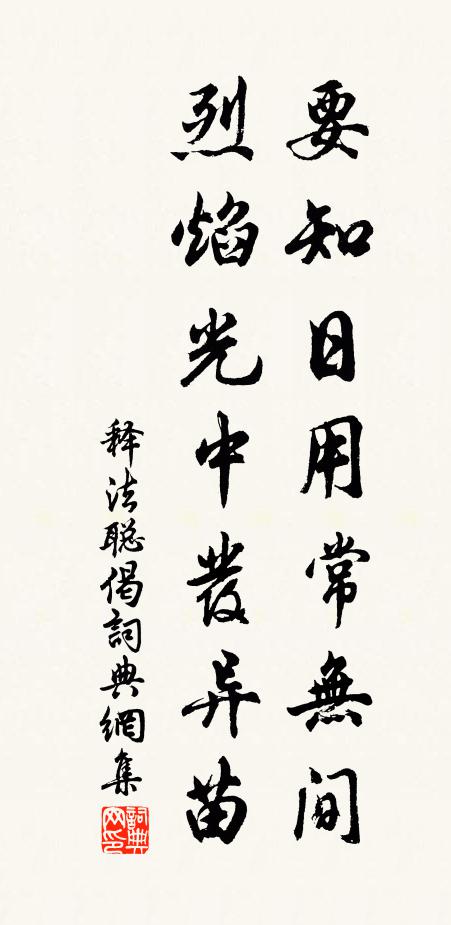 要知日用常無间
烈焰光中發异苗
释法聪偈詞典網集
詞典网印